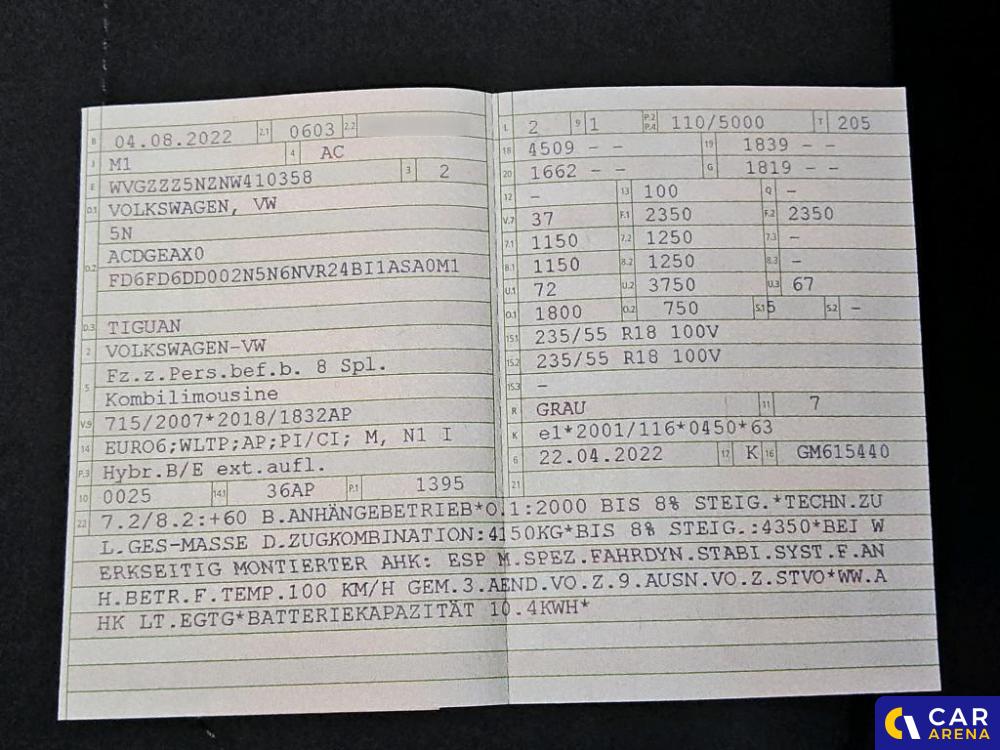 B 04.08.2022 2.1 0603 2.2
J M1 4 AC
E WVGZZZ5NZNW410358 3 2
D.1 VOLKSWAGEN, VW
5N
D.2 ACDGEAX0
FD6FD6DD002N5N6NVR24BI1ASA0M1
D.3 TIGUAN
2 VOLKSWAGEN-VW
5 Fz.z.Pers.bef.b. 8 Spl.
Kombilimousine
V.9 715/2007*2018/1832AP
14 EURO6;WLTP;AP;PI/CI; M, N1 I
P.3 Hybr.B/E ext.aufl.
10 0025 14.1 36AP P.1 1395
L 2 9 1 P.2 P.4 110/5000 T 205
18 4509 – – 19 1839 – –
20 1662 – – G 1819 – –
12 – 13 100 Q –
V.7 37 F.1 2350 F.2 2350
7.1 1150 7.2 1250 7.3 –
8.1 1150 8.2 1250 8.3 –
U.1 72 U.2 3750 U.3 67
O.1 1800 O.2 750 S.1 5 S.2 –
15.1 235/55 R18 100V
15.2 235/55 R18 100V
15.3 –
R GRAU 11 7
K e1*2001/116*0450*63
6 22.04.2022 17 K 16 GM615440
21
22 7.2/8.2:+60 B.ANHÄNGEBETRIEB*O.1:2000 BIS 8% STEIG.*TECHN.ZU
L.GES-MASSE D.ZUGKOMBINATION:4150KG*BIS 8% STEIG.:4350*BEI W
ERKSEITIG MONTIERTER AHK: ESP M.SPEZ.FAHRDYN.STABI.SYST.F.AN
H.BETR.F.TEMP.100 KM/H GEM.3.AEND.VO.Z.9.AUSN.VO.Z.STVO*WW.A
HK LT.EGTG*BATTERIEKAPAZITÄT 10.4KWH*
CAR
ARENA